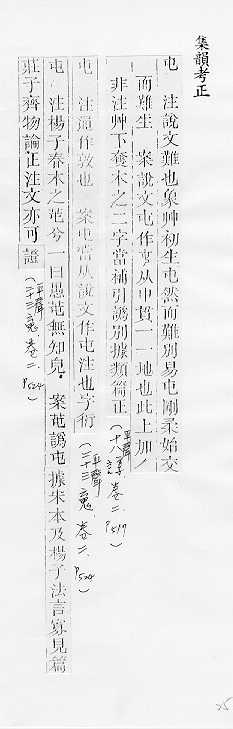 集韻考正
屯 注說文難也象艸初生屯然而難別易屯剛柔始交
而難生 案說文屯作屯从屮貫一一地也此上加ノ
非注艸下奪木之二字當補引譌別據類篇正
(平聲十八諄卷二, P517)
屯 注逼作敦也 案屯當从說文作屯注也字衍
(平聲二十三魂, 卷二, P504)
屯 注楊子春木之芚兮一曰愚芚無知皃 案芚譌屯據宋本及楊子法言寡見篇
莊子齊物論正注文亦可證
(平聲二十三魂卷二, P504)
25